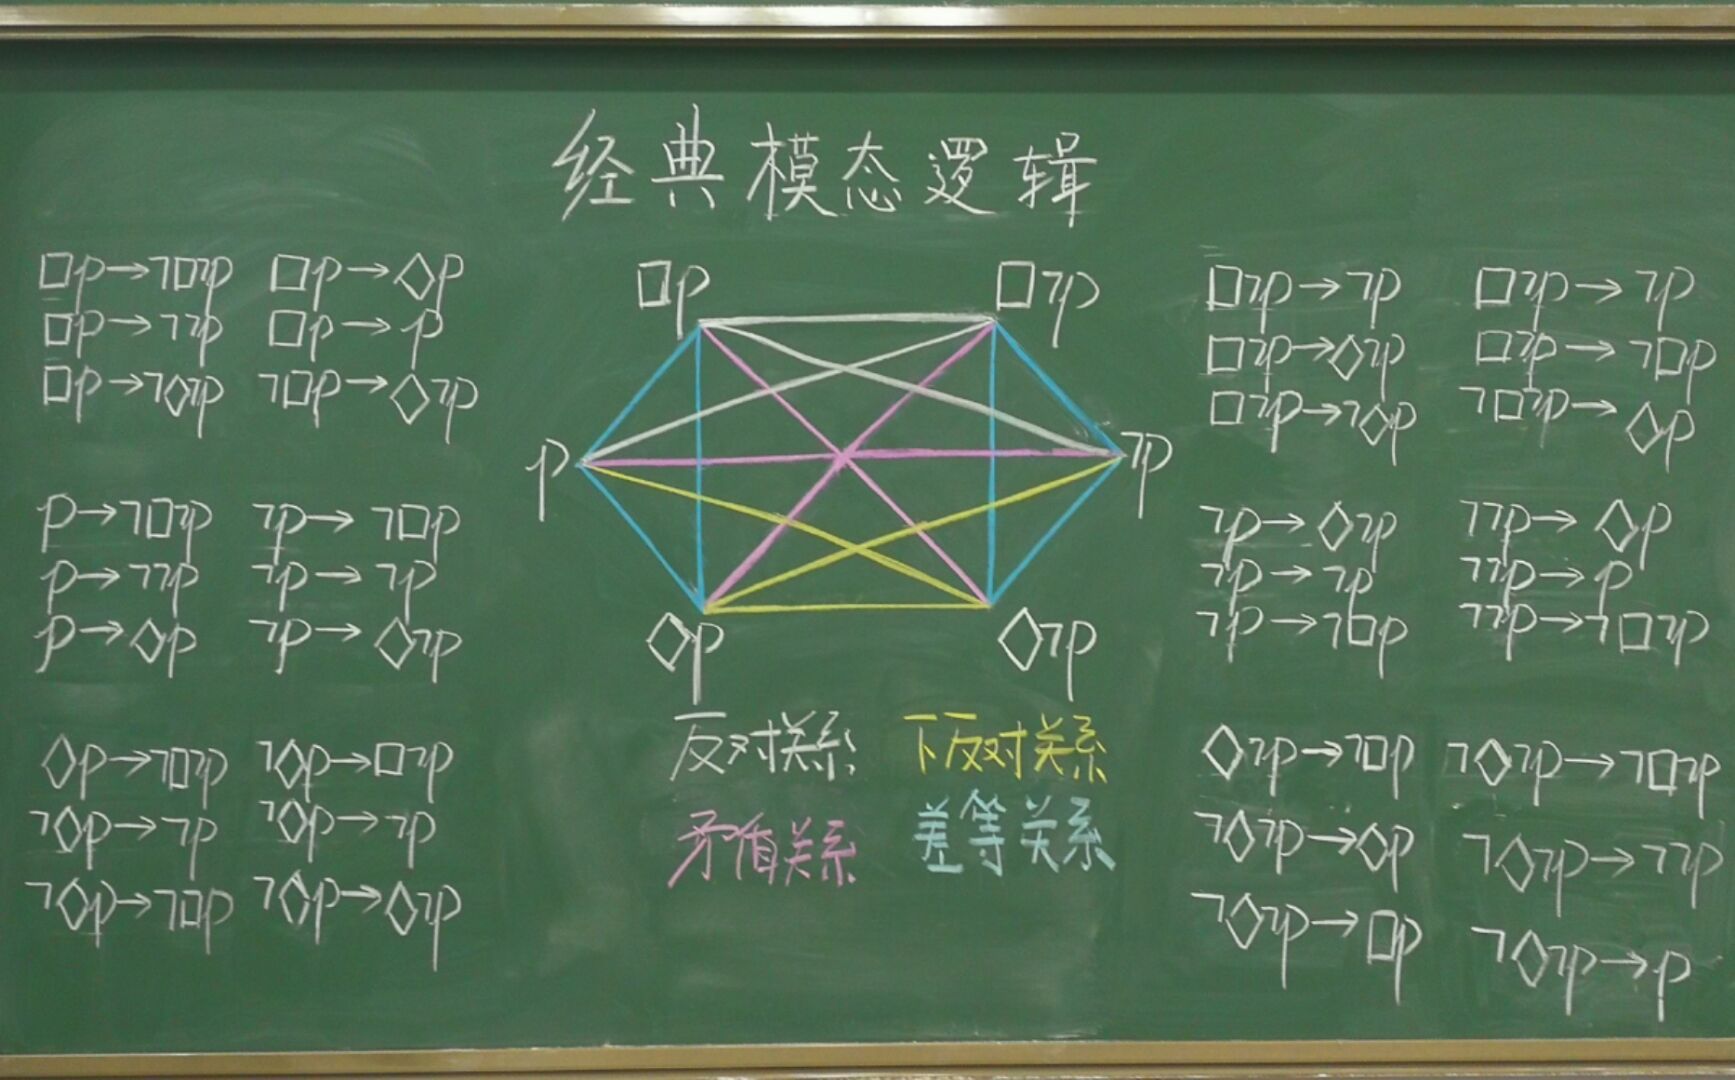 经典模态逻辑
□p→¬□¬p □p→◇p
□p→¬¬p □p→p
□p→¬◇¬p ¬□p→◇¬p
p→¬□¬p ¬p→¬□p
p→¬¬p ¬p→¬p
p→◇p ¬p→◇¬p
◇p→¬□¬p ¬◇p→□¬p
¬◇p→¬p ¬◇p→¬p
¬◇p→¬□p ¬◇p→◇¬p
□p □¬p
p ¬p
◇p ◇¬p
反对关系 下反对关系
矛盾关系 差等关系
□¬p→¬p □¬p→¬p
□¬p→◇¬p □¬p→¬□p
□¬p→¬◇p ¬□¬p→◇p
¬p→◇¬p ¬¬p→◇p
¬p→¬p ¬¬p→p
¬p→¬□p ¬¬p→¬□¬p
◇¬p→¬□p ¬◇¬p→¬□¬p
¬◇¬p→◇p ¬◇¬p→¬¬p
¬◇¬p→□p ¬◇¬p→p